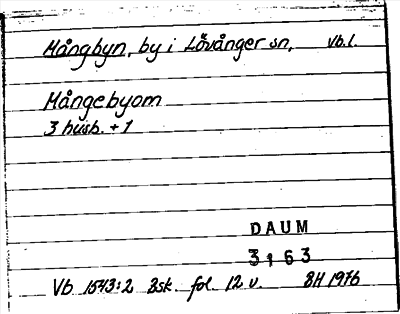 Mångbyn, by i Lövånger sn, Vb.l.
Mångebyom
3 hush. + 1
DAUM
3163
Vb 1543:2 Bsk fol. 12 v. BH 1976